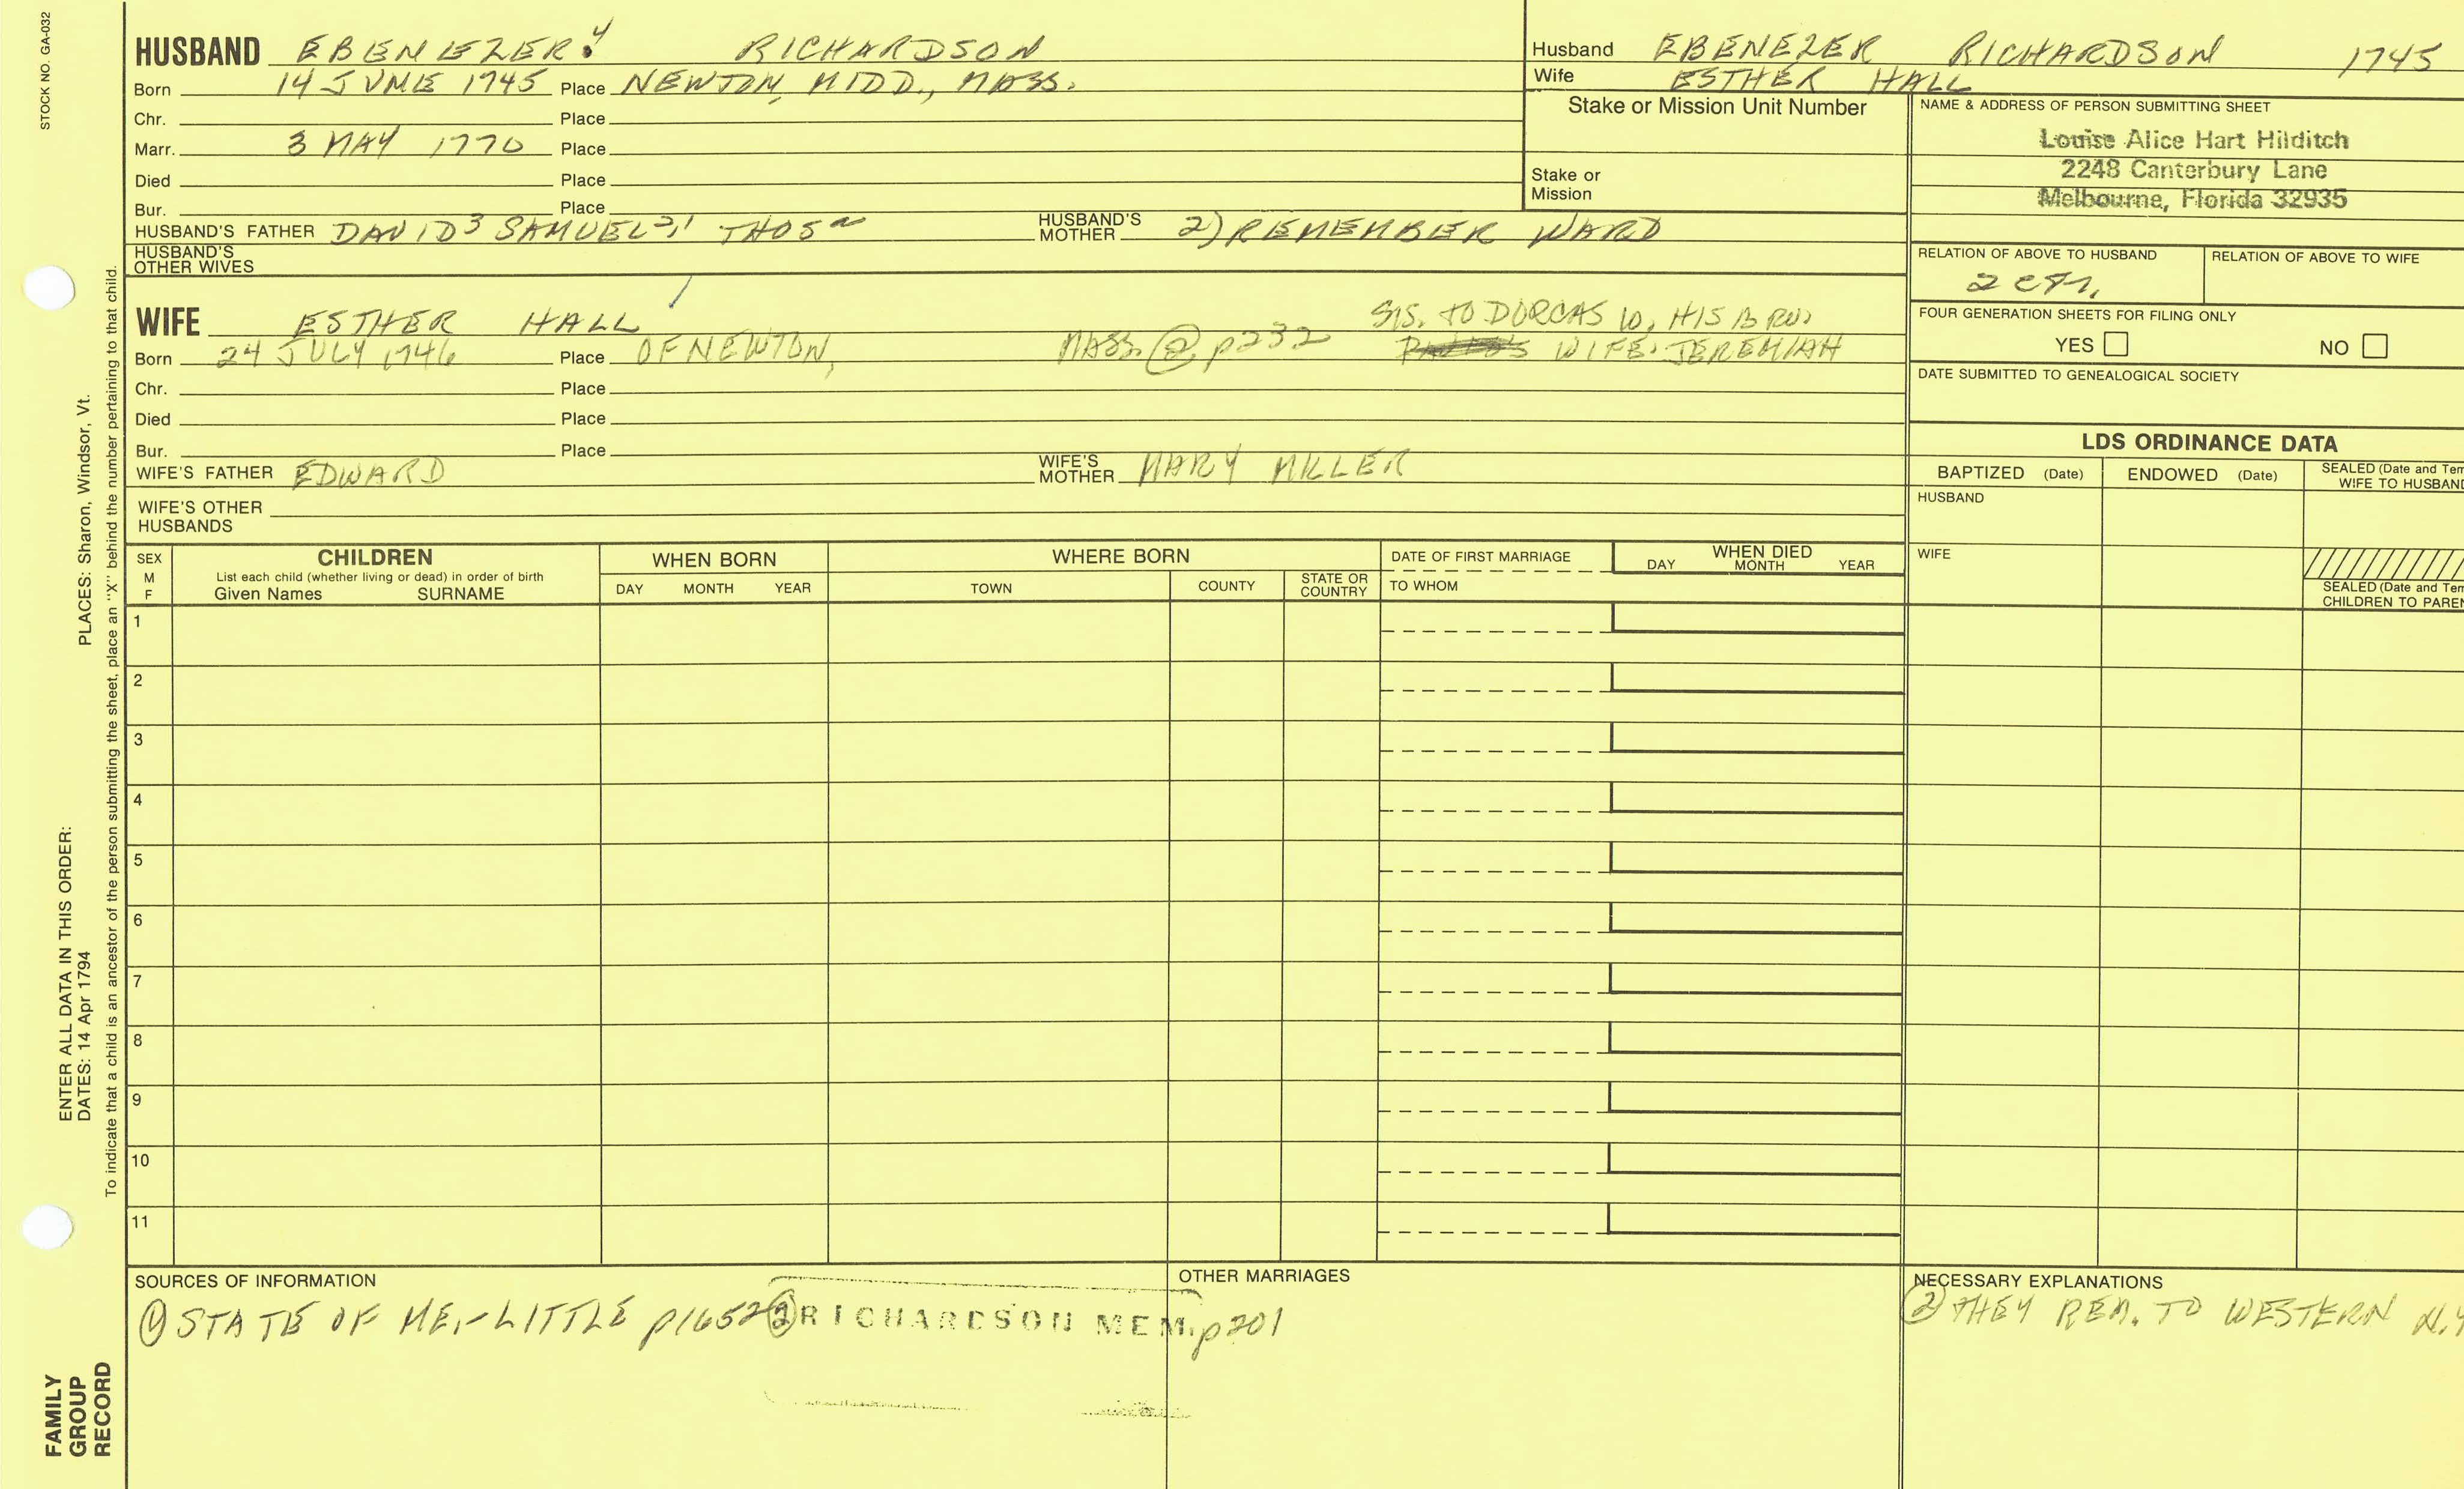 STOCK NO. GA-032
HUSBAND EBENEZER 4 RICHARDSON
Born 14 JUNE 1745 Place NEWTON, MIDD., MASS.
Chr. Place
Marr. 3 MAY 1770 Place
Died Place
Bur. Place
HUSBAND'S FATHER DAVID 3 SAMUEL 2,1 THOS HUSBAND'S MOTHER 2) REMEMBER WARD
HUSBAND'S OTHER WIVES
WIFE ESTHER HALL SIS. TO DORCAS W. HIS BRO.
Born 24 JULY 1746 Place OF NEWTON, MASS. @ p232 WIFE. JEREMIAH
Chr. Place
Died Place
Bur. Place
WIFE'S FATHER EDWARD WIFE'S MOTHER MARY MILLER
WIFE'S OTHER HUSBANDS
Husband EBENEZER RICHARDSON 1745
Wife ESTHER HALL
Stake or Mission Unit Number
Stake or Mission
NAME & ADDRESS OF PERSON SUBMITTING SHEET
Louise Alice Hart Hilditch
2248 Canterbury Lane
Melbourne, Florida 32935
RELATION OF ABOVE TO HUSBAND RELATION OF ABOVE TO WIFE
FOUR GENERATION SHEETS FOR FILING ONLY
YES NO
DATE SUBMITTED TO GENEALOGICAL SOCIETY
LDS ORDINANCE DATA
BAPTIZED (Date) ENDOWED (Date) SEALED (Date and Tem
WIFE TO HUSBAND
HUSBAND
WIFE
SEALED (Date and Tem
CHILDREN TO PAREN
SEX M F CHILDREN WHEN BORN WHERE BORN DATE OF FIRST MARRIAGE WHEN DIED
List each child (whether living or dead) in order of birth
Given Names SURNAME DAY MONTH YEAR TOWN COUNTY STATE OR COUNTRY TO WHOM DAY MONTH YEAR
1
2
3
4
5
6
7
8
9
10
11
SOURCES OF INFORMATION
① STATE OF ME.-LITTLE p1652 ② RICHARDSON MEM. p201
OTHER MARRIAGES
NECESSARY EXPLANATIONS
② THEY REM. TO WESTERN N.Y
PLACES: Sharon, Windsor, Vt.
ENTER ALL DATA IN THIS ORDER:
DATES: 14 Apr 1794
To indicate that a child is an ancestor of the person submitting the sheet, place an "X" behind the number pertaining to that child.
FAMILY
GROUP
RECORD